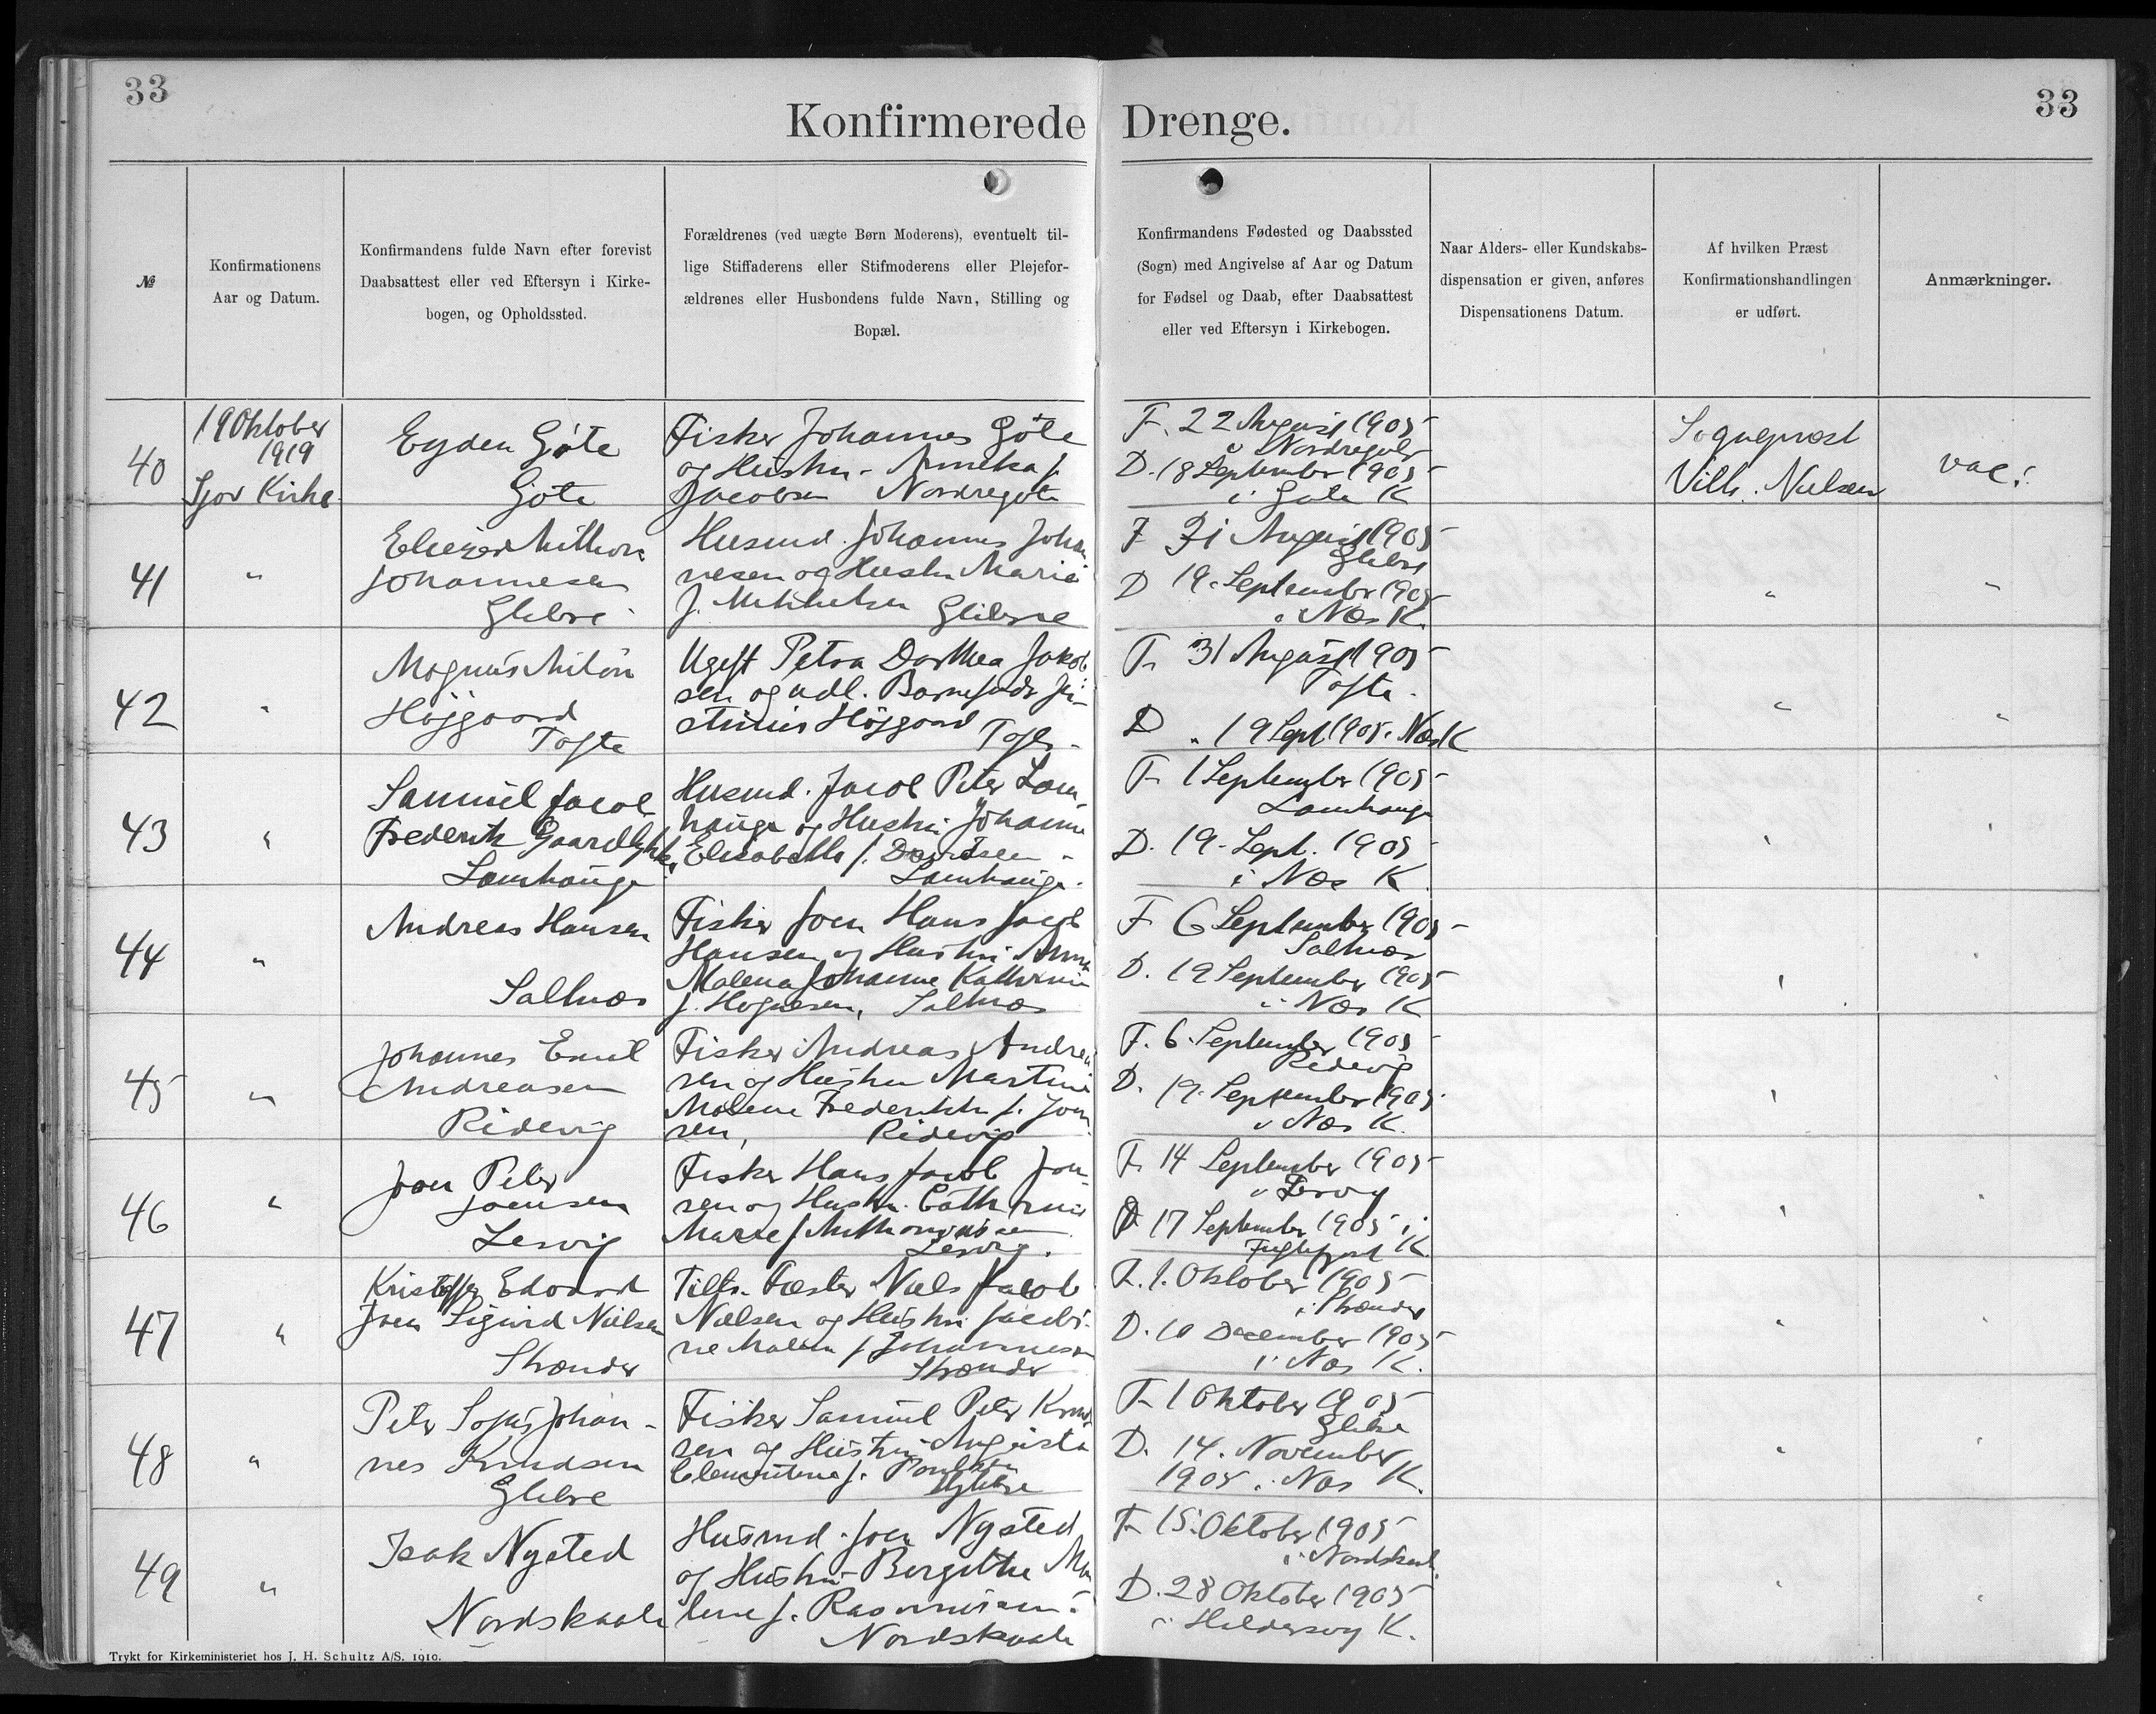 33
33
Konfirmerede Drenge.
№
Konfirmationens
Aar og Datum.
Konfirmandens fulde Navn efter forevist
Daabsattest eller ved Eftersyn i Kirke-
bogen, og Opholdssted.
Forældrenes (ved uægte Børn Moderens), eventuelt til-
lige Stiffaderens eller Stifmoderens eller Plejefor-
ældrenes eller Husbondens fulde Navn, Stilling og
Bopæl.
Konfirmandens Fødested og Daabssted
(Sogn) med Angivelse af Aar og Datum
for Fødsel og Daab, efter Daabsattest
eller ved Eftersyn i Kirkebogen.
Naar Alders- eller Kundskabs-
dispensation er given, anføres
Dispensationens Datum.
Af hvilken Præst
Konfirmationshandlingen
er udført.
Anmærkninger.
40
19 Oktober
1919
Sjov Kirke
Eyden Göte
Göte
Fisker Johannes Göte
og Hustru Annika f.
Jacobsen Nordregøte
F. 22 August 1905
D. 18 September 1905
i Gøte K
Sognepræst
Vilh. Nielsen
vac:
41
"
Johannesen
Glibre
Husmd. Johannes Johan
nesen og Hustru Marie
f. Mikkelsen Glibre
F 31 August 1905
Glibre
D 19. September 1905
i Næs K.
"
"
42
"
Magnus
Höjgaard
Tofte
Ugift Petra Dorthea Jakob
sen og udl. Barnefader Ju-
stinus Höjgaard Tofte
F. 31 August 1905
Tofte.
D. 19 Sept. 1905. Næs K
"
"
43
"
Samuel Jacob
Frederik Gaardlykke
Lamhauge
Husmd. Jacob Peter Lam-
hauge og Hustru Johanne
Elisabeth f. Davidsen
Lamhauge.
F. 1 September 1905
Lamhauge
D. 19. Sept. 1905
i Næs K.
"
"
44
"
Andreas Hansen
Saltnæs
Fisker Joen Hans Jacob
Hansen og Hustru Anna
Malena Johanne Kathrine
f. Saltnæs
F 6 September 1905
Saltnæs
D. 19 September 1905
i Næs K
"
"
45
"
Johannes Emil
Andreasen
Ridevig
Fisker Andreas Andrea
sen og Hustru Martine
Malene Frederikke f. Joen
sen, Ridevig
F. 6. September 1905
Ridevig
D. 19. September 1905
i Næs K.
"
"
46
"
Joen Peter
Joensen
Lervig
Fisker Hans Jacob Joen
sen og Hustru Cathrine
Marie f.
Lervig.
F. 14 September 1905
i Lervig
D 17 September 1905 i
Fuglefjord K.
"
"
47
"
Kristoffer Edvard
Joen Sigurd Nielsen
Strænder
Niels Jacob
Nielsen og Hustru Jacobi-
ne Malene f. Johannesen
Strænder
F. 1. Oktober 1905
i Strænder
D. 10 December 1905
i Næs K.
"
"
48
"
Peter Sofus Johan-
nes Knudsen
Glibre
Fisker Samuel Peter Knud
sen og Hustru Augusta
Clementine f. Poulsen
Glibre
F. 1 Oktober 1905
Glibre
D. 14. November
1905 i Næs K.
"
"
49
"
Isak Nysted
Nordskaale
Husmd. Joen Nysted
og Hustru Bergithe Ma
lene f. Rasmussen.
Nordskaale
F. 15. Oktober 1905
i Nordskaale
D. 28 Oktober 1905
i Haldersvig K.
"
"
Trykt for Kirkeministeriet hos J. H. Schultz A/S. 1919.